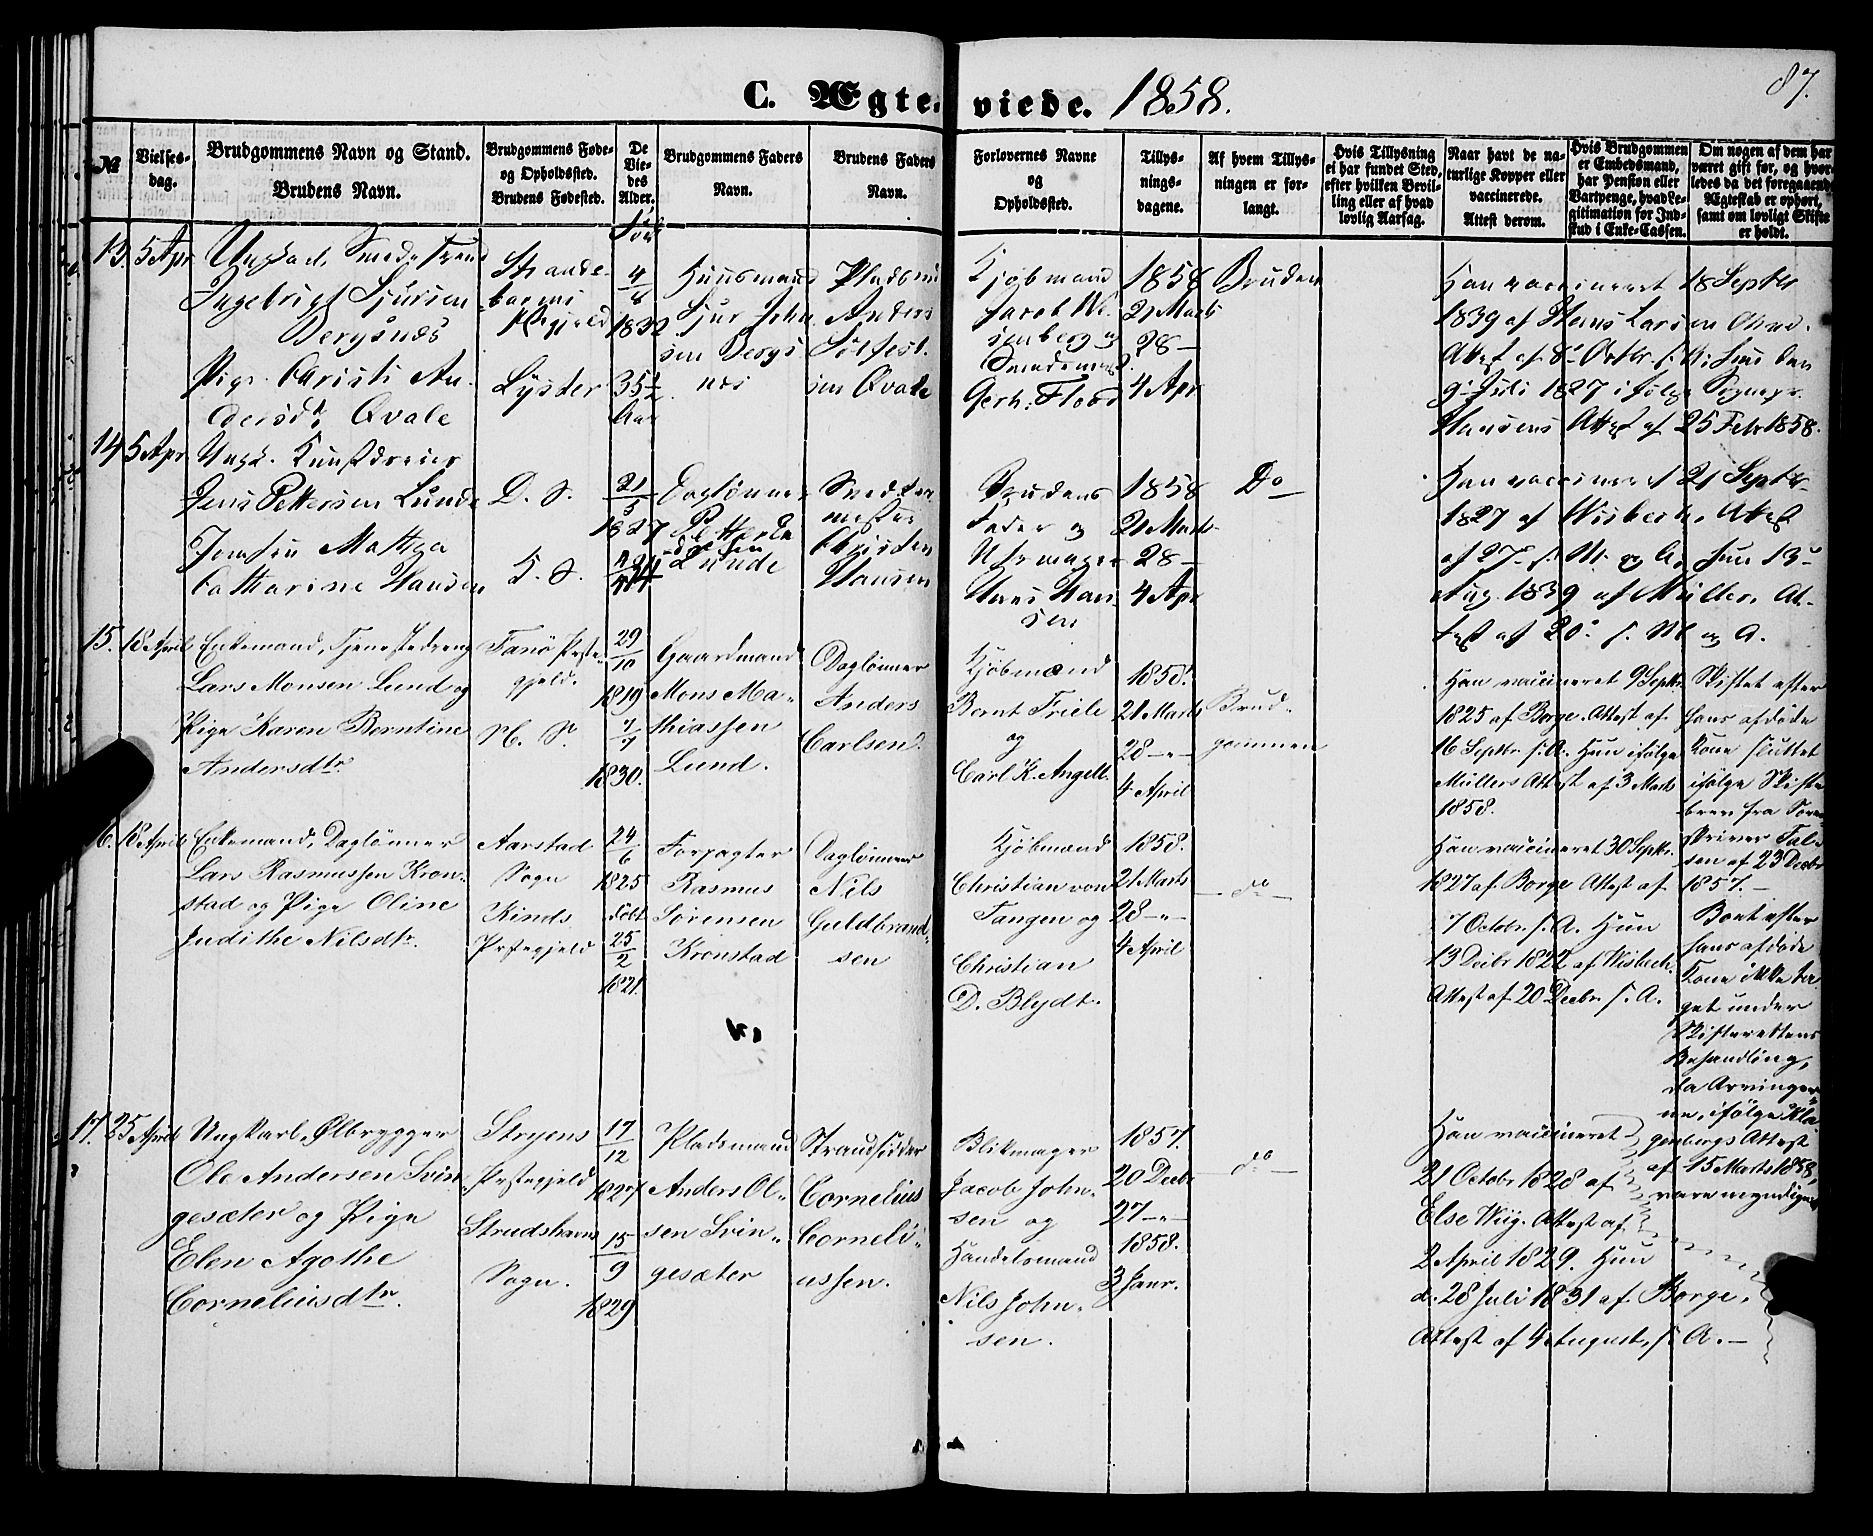 C. Ægte- viede. 1858.
87.
№
Vielses-
dag.
Brudgommens Navn og Stand.
Brudens Navn.
Brudgommens Føde-
og Opholdssted.
Brudens Fødested.
De
Vie-
des
Alder.
Brudgommens Faders
Navn.
Brudens Faders
Navn.
Forlovernes Navne
og
Opholdssted.
Tillys-
nings-
dagene.
Af hvem Tillys-
ningen er for-
langt.
Hvis Tillysning
ei har fundet Sted,
efter hvilken Bevil-
ling eller af hvad
lovlig Aarsag.
Naar havt de na-
turlige Kopper eller
vaccinerede.
Attest derom.
Hvis Brudgommen
er Embedsmand,
har Pension eller
Vartpenge, hvad Le-
gitimation for Ind-
skud i Enke-Cassen.
Om nogen af dem har
været gift før, og hvor-
ledes da det foregaaende
Ægteskab er ophørt,
samt om lovligt Skifte
er holdt.
13.
5 Apr
Ingebrigt Sjursen
Bergsnæs
Pige Christi An-
dersdr Qvale
Strande-
barms
Pgjeld
Lyster
4/8
1832
35½
Aar
Huusmand
Sjur John
sen Bergs
nes
Pladsm
Anders
sen Qvale
Kjøbmand
Jacob We-
senberg og
Smedem
Gerh. Floor
1858
21 Marts
28 —
4 Apr
Bruden
Han vaccineret 18 Septbr
1839 af Hans Larsen
Attest af 8de Octbr. s. A. Hun den
9de Juli 1827 ifølge Sognepr.
Hansens Attest af 25 Febr 1858.
14
5 Apr
Ungk. Kunstdreier
Jens Pettersen Lunde
Jomfru Mathea
Catharine Hansen
D. S.
K. S.
21/5
1827
Dagløнner
Petter
Lunde
Smedde-
mester
Christen
Hansen
Brudens
Fader og
Uhrmager
Hans Han-
sen
1858
21 Marts
28 —
4 Apr
Do
Han vaccineret 21 Septbr
1827 af Wisbech, Attest
af 27 s. M. og A. Hun 13de
Aug. 1839 af Müller, At-
test af 20de s. M. og A.
15.
18 April
Enkemand, Tjenestedreng
Lars Monsen Lund og
Pige Karen Berntine
Andersdtr
Fanø Præste-
gjeld.
N. S.
29/10
1819
7/7
1830.
Gaardmand
Mons Ma-
thiassen
Lund.
Daglønner
Anders
Carlsen.
Kjøbmænd
Bernt Friele
og
Carl K. Angell.
1858.
21 Marts
28 — „ —
4 April
Brud-
gommen
Han vaccineret 9 Septbr.
1825 af Borge. Attest af
16 Septbr. s. A. Hun ifølge
Müllers Attest af 3 Marts
1858.
Skiftet efter
hans afdøde
Kone sluttet
ifølge Skifte-
brev fra Soren-
skriver Fal-
sen af 23 Decbr
1857. —
16.
18 April
Enkemand, Daglønner
Lars Rasmussen Kron-
stad og Pige Oline
Judithe Nilsdtr.
Aarstad
Sogn
Kinds
Præstegjeld
24/6
1825
døbt
25/2
1821.
Forpagter
Rasmus
Sørensen
Kronstad
Daglønner
Nils
Guldbrand-
sen
Kjøbmænd
Christian von
Tangen og
Christian
D. Blydt.
1858.
21 Marts
28 — „ —
4 April
— do —
Han vaccineret 30 Septbr.
1827 af Borge Attest af
7 Octobr. s. A. Hun
13 Decbr 1822 af Wisbech.
Attest af 20 Decbr. s. A.
Boet efter
hans afdøde
Kone ikke ta-
get under
Skifterettens
Behandling,
da Arvinger-
ne, ifølge Kla-
genbergs Attest
af 15 Marts 1858,
vare myndige
17.
25 April
Ungkarl, Ølbrygger
Ole Andersen Svin-
gesæter og Pige
Elen Agothe
Corneliusdtr.
Stryens
Præstegjeld
Strudshavns
Sogn.
17/12
1827
15/9
1829
Pladsmand
Anders Ol-
sen Svin-
gesæter
Strandsidder
Cornelius
Corneli-
ussen.
Blikmager
Jacob John-
sen og
Handelsmand
Nils John-
sen.
1857.
20 Decbr
27 — „ —
1858.
3 Janr.
— do —
Han vaccineret
21 Octobr 1828 af
Else Wiig. Attest af
2 April 1829. Hun
d. 28 Juli 1831 af Borge,
Attest af 4 August, s. A. —